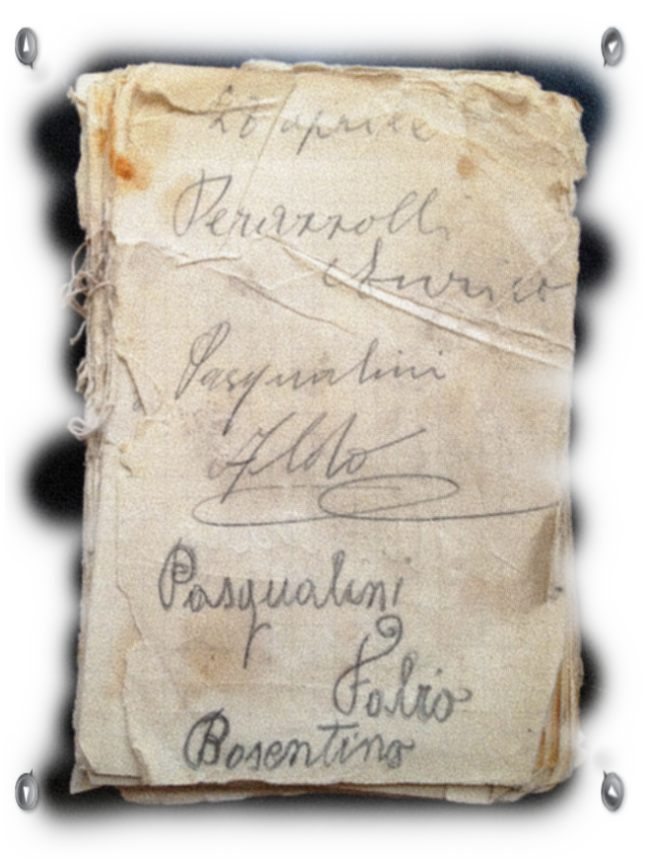 26 aprile
Perazzolli
Enrico
Pasqualini
Aldo
Pasqualini
Fabio
Bosentino